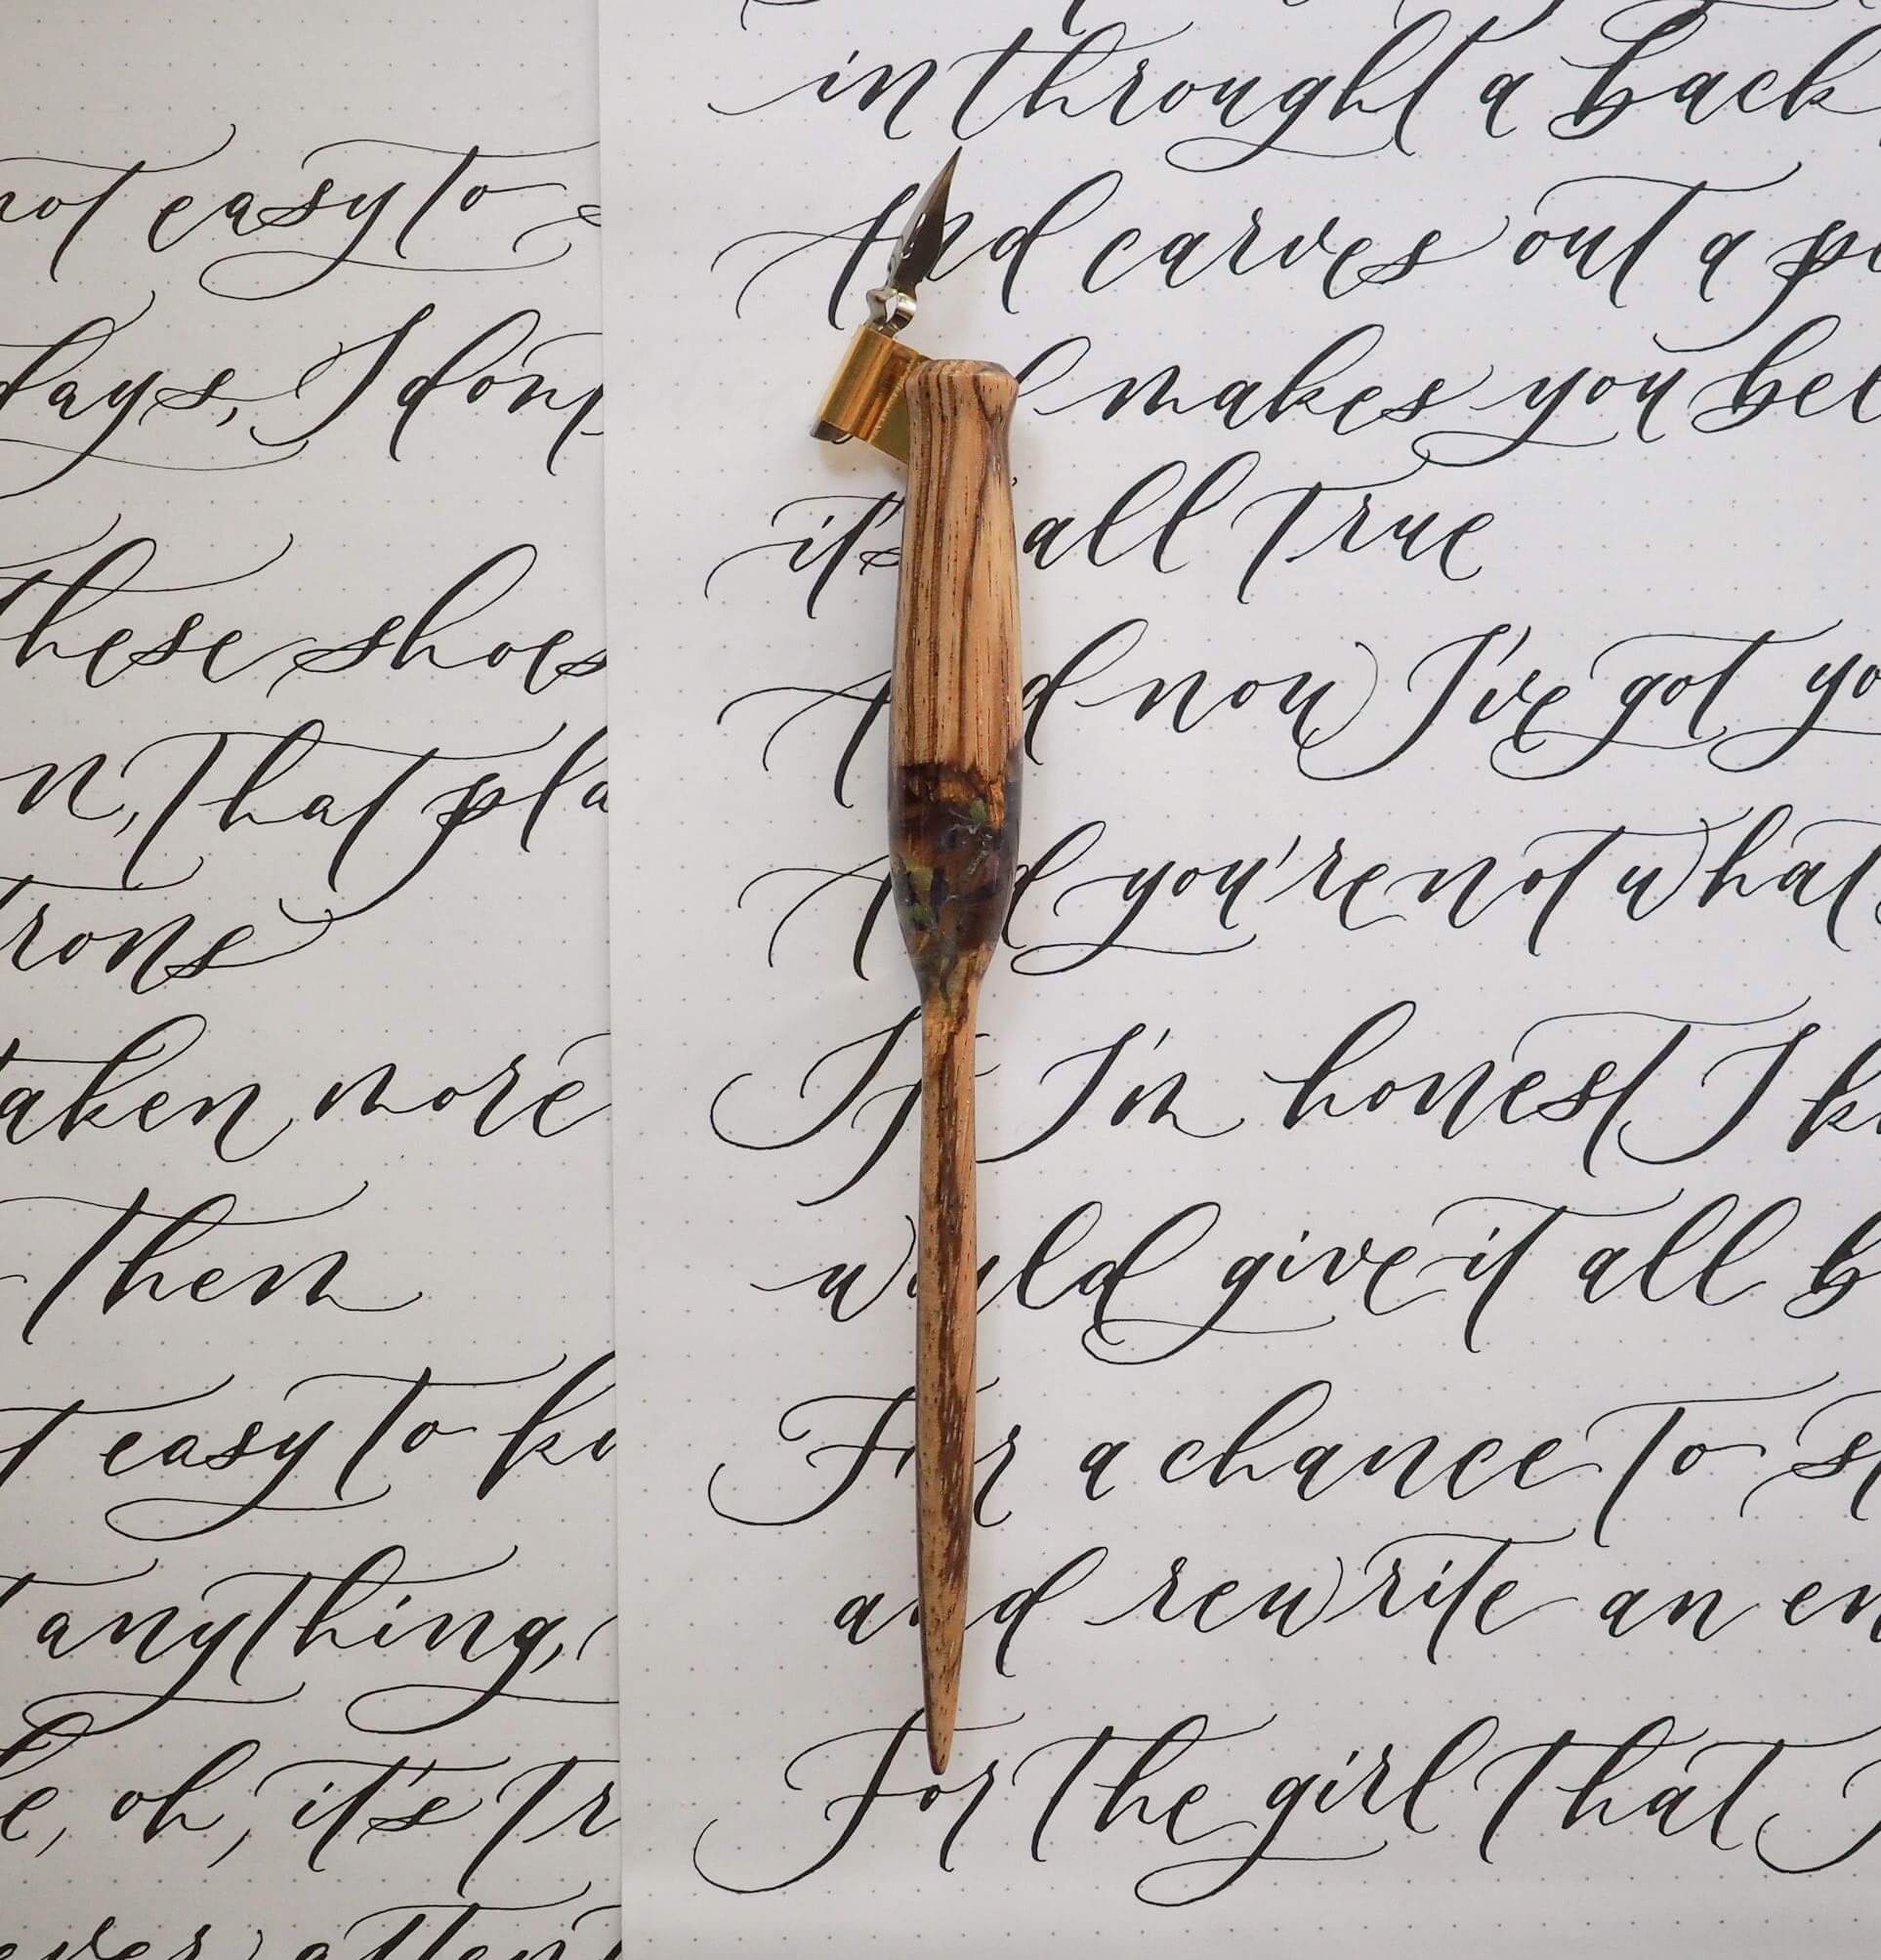 not easy to
days, I don
these shoes
that pla
trons
taken more
then
easy to kn
anything,
oh, it's tr
ever atten
in throught a back
And carves out a
makes you bel
it's all true
And now I've got yo
And you're not what
If I'm honest I k
would give it all b
For a chance to st
and rewrite an en
For the girl that I